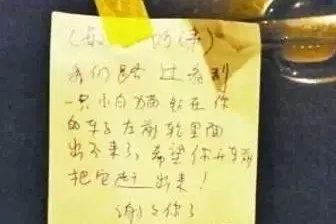 我们路过看到
一只小白猫钻在你
的车子左前轮里面
出不来了,希望你开车前
把它赶出来!
谢谢你了